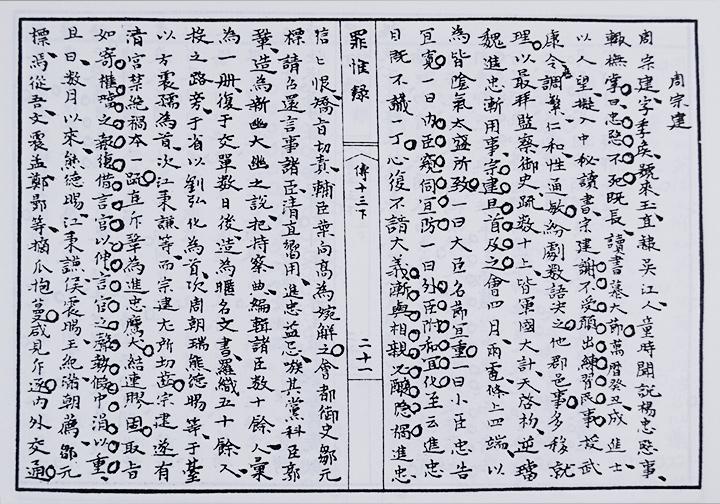 周宗建
周宗建字季侯號來玉直隸吳江人童時聞說楊忠愍事
輙撫掌曰忠愍不死既長讀書慕大節萬曆癸丑成進士
以人望擬入中秘讀書宗建謝不受願出練習民事授武
康令調繁仁和性通敏紛劇數語决之他郡邑事多移就
理以最拜監察御史疏數十上皆軍國大計天啓初逆璫
魏進忠漸用事宗建旦首及之會四日雨雹條上四端以
為皆陰氣太盛所致一曰大臣名節宜重一曰小臣忠告
宜寬一曰內臣窺伺宜防一曰外臣附和宜化至云進忠
目既不識一丁心復不諳大義漸與相親釀隐禍進忠
罪惟錄
傳十三下
二十一
信匕恨矯旨切責輔臣葉向高為婉解之會都御史鄒元
標請召還言事諸臣清直響用進忠益忌嗾其黨科臣郭
鞏造為新幽大幽之說把持察典編輯諸臣數十餘人彙
為一册復于交單數日後造為匿名文書羅織五十餘人
投之路旁于省以劉弘化為首次周朝瑞熊德賜等于臺
以方震孺為首次江秉謙等而宗建尤所切齒宗建遂有
清宮禁絶禍本一疏直斥鞏為進忠鷹犬結連膠固取旨
如寄摧璫之報復借言官以伸言官之聲勢假中涓以重
且曰數月以來熊德賜江秉謙侯震暘王紀滿朝薦鄒元
標馮從吾文震孟鄭鄤等摘瓜抱蔓咸見斥逐内外交通